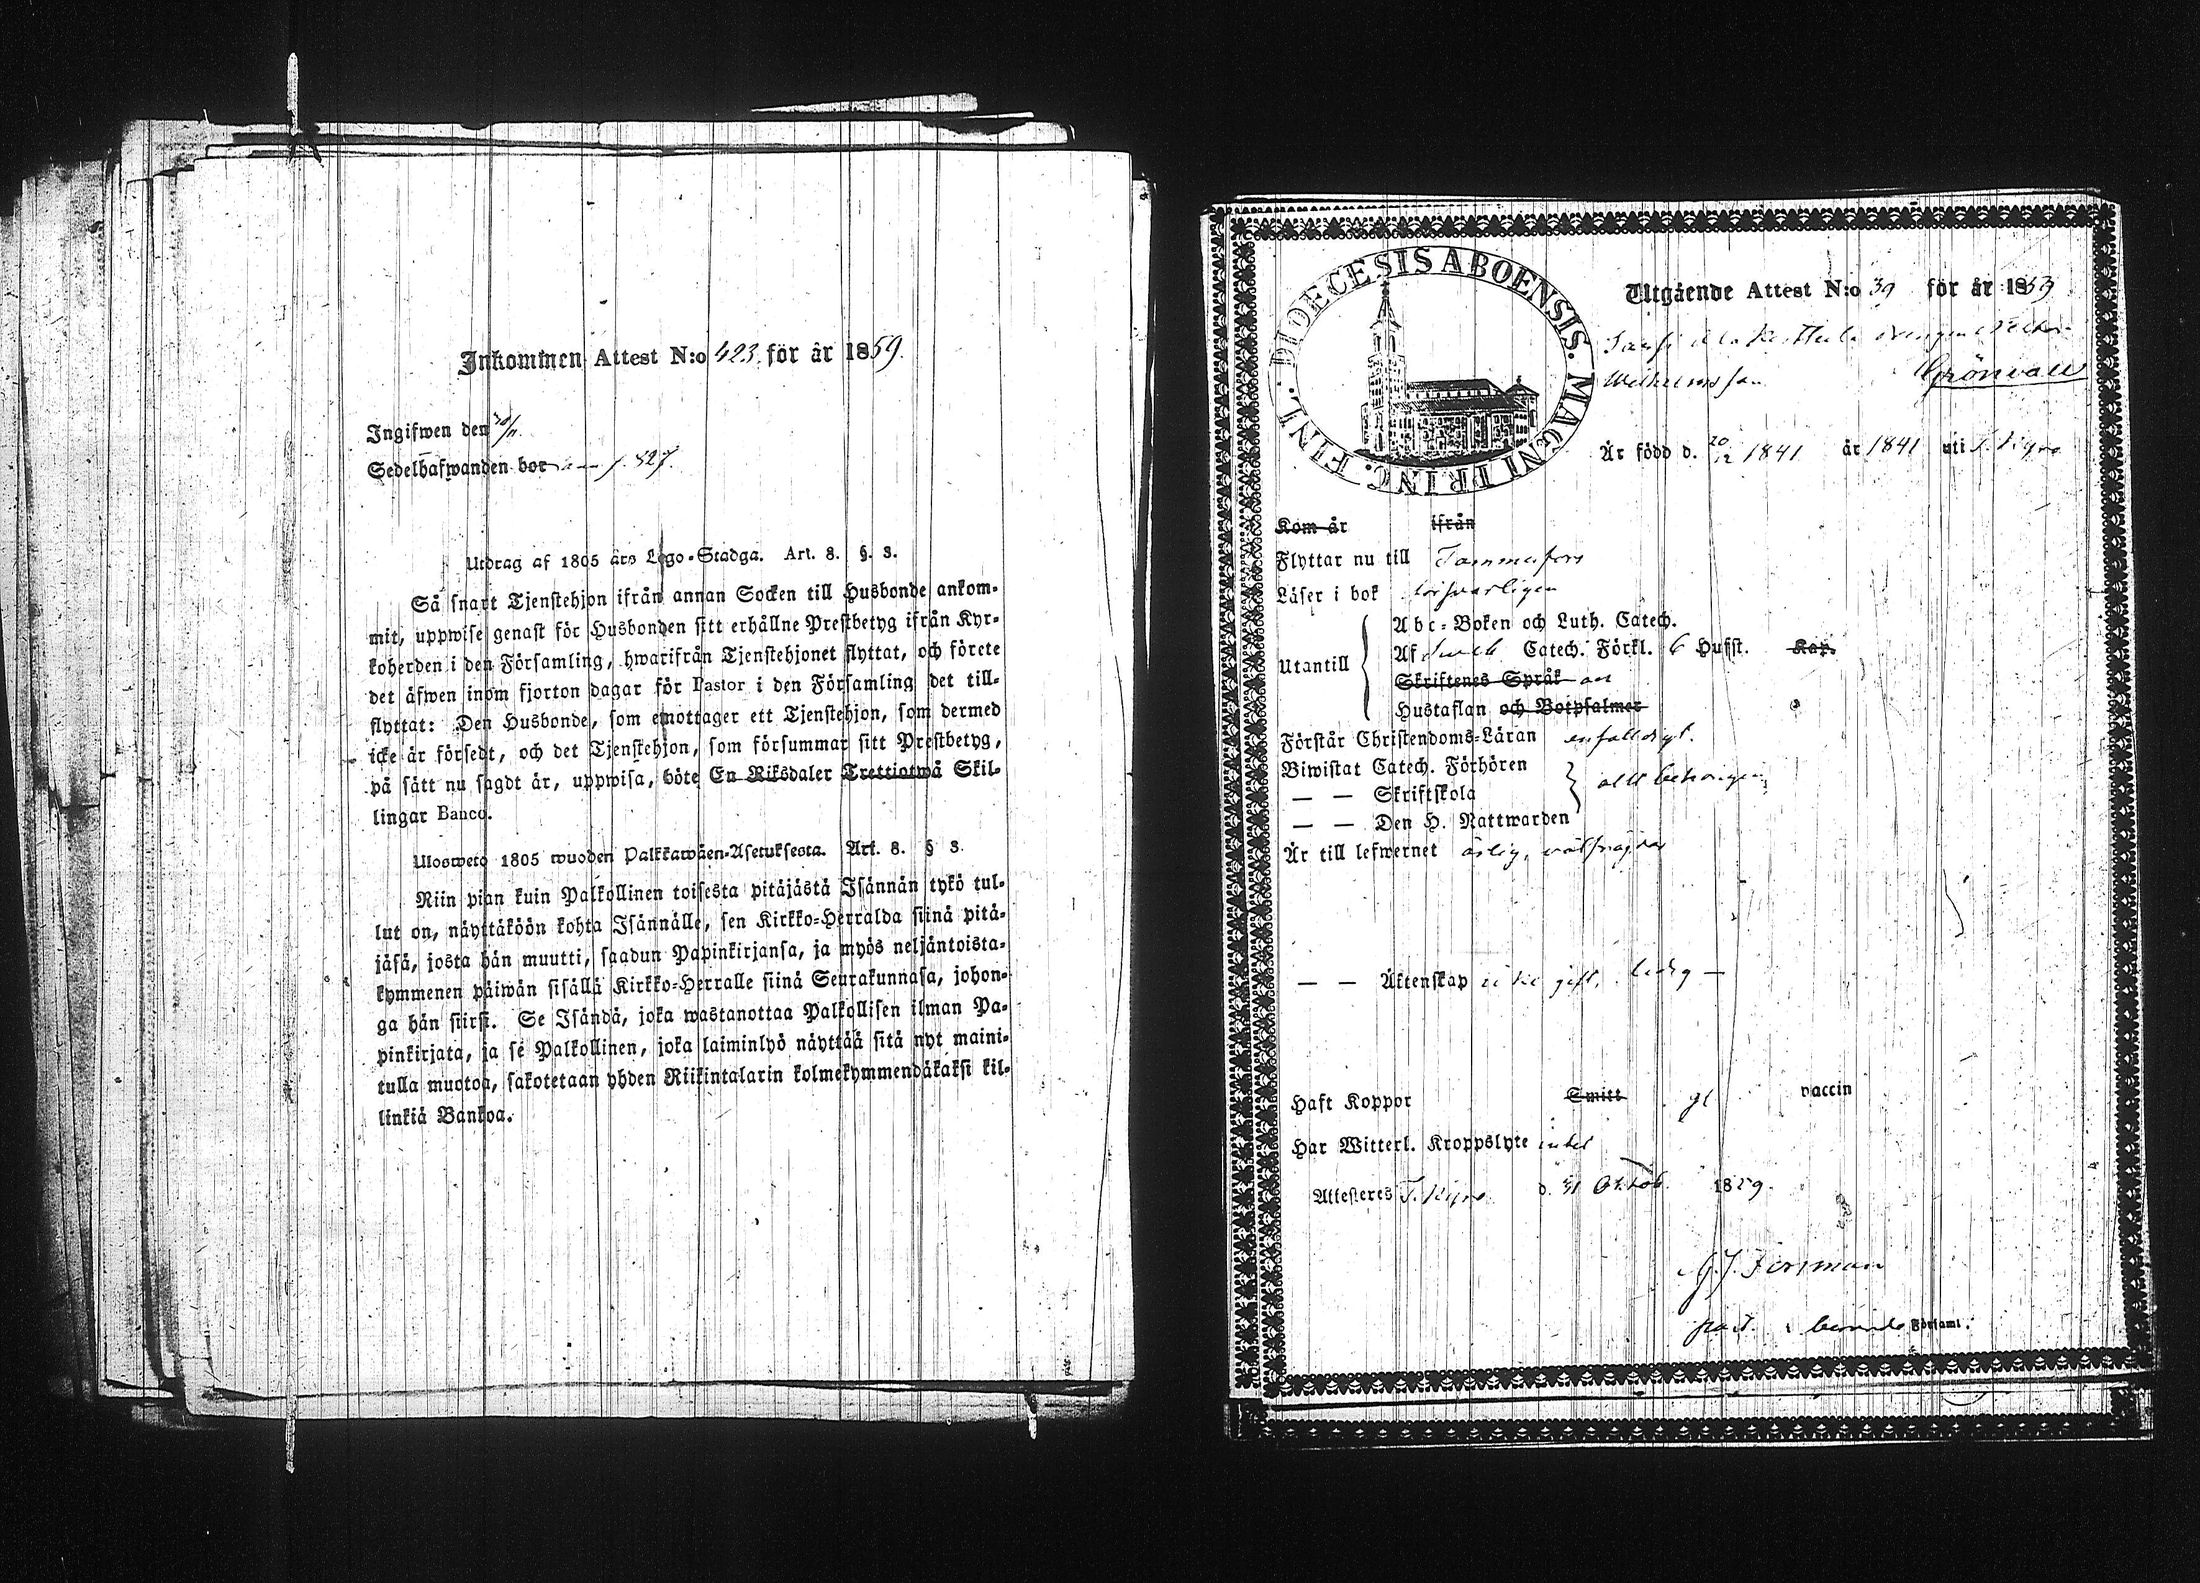 Inkommen Attest N:o 423. för år 1859.
Ingifwen den 20/11.
Sedelhafwanden bor p. 327.
Utdrag af 1805 års Lego-Stadga. Art. 8. §. 3.
Så snart Tjenstehjon ifrån annan Socken till Husbonde ankom-
mit, uppwise genast för Husbonden sitt erhållne Prestbetyg ifrån Kyr-
koherden i den Församling, hwarifrån Tjenstehjonet flyttat, och förete
det äfwen inom fjorton dagar för Pastor i den Församling det till-
flyttat: Den Husbonde, som emottager ett Tjenstehjon, som dermed
icke är försedt, och det Tjenstehjon, som försummar sitt Prestbetyg,
på sätt nu sagdt är, uppwisa, böte En Riksdaler Trettiotwå Skil-
lingar Banco.
Ulosweto 1805 wuoden Palkkawäen-Asetuksesta. Art. 8. § 3.
Niin pian kuin Palkollinen toisesta pitäjästä Isännän tykö tul-
lut on, näyttäköön kohta Isännälle, sen Kirkko-Herralda siinä pitä-
jäsä, josta hän muutti, saadun Papinkirjansa, ja myös neljäntoista-
kymmenen päiwän sisällä Kirkko-Herralle siinä Seurakunnasa, johon-
ga hän siirsi. Se Isändä, joka wastanottaa Palkollisen ilman Pa-
pinkirjata, ja se Palkollinen, joka laiminlyö näyttää sitä nyt maini-
tulla muotoa, sakotetaan yhden Riikintalarin kolmekymmendäkaksi kil-
linkiä Bankoa.
DIOECESIS ABOENSIS. MAGNI PRINC. FINL.
Utgående Attest N:o 39 för år 1859
Wilhelmsson Grönvall
Är född d. 20/12 1841 år 1841 uti T. Kyro
Kom år ifrån
Flyttar nu till Tammerfors
Läser i bok försvarligen
Utantill
Abc-Boken och Luth. Catech.
Af Catech. Förkl. 6 Hufst. Kap.
Skriftenes Språk
Hustaflan och Botpsalmer
Förstår Christendoms-Läran enfaldigt.
Biwistat Catech. Förhören
— — Skriftskola
— — Den H. Nattwarden
allt behörigen
Är till lefwernet ärlig, välfrejdad
— — Äktenskap icke gift, ledig —
Haft Koppor Smitt gt vaccin
Har Witterl. Kroppslyte intet
Attesteres T. Kyro d. 31 Oktob. 1859.
Forsman
past. i berörde Församl.